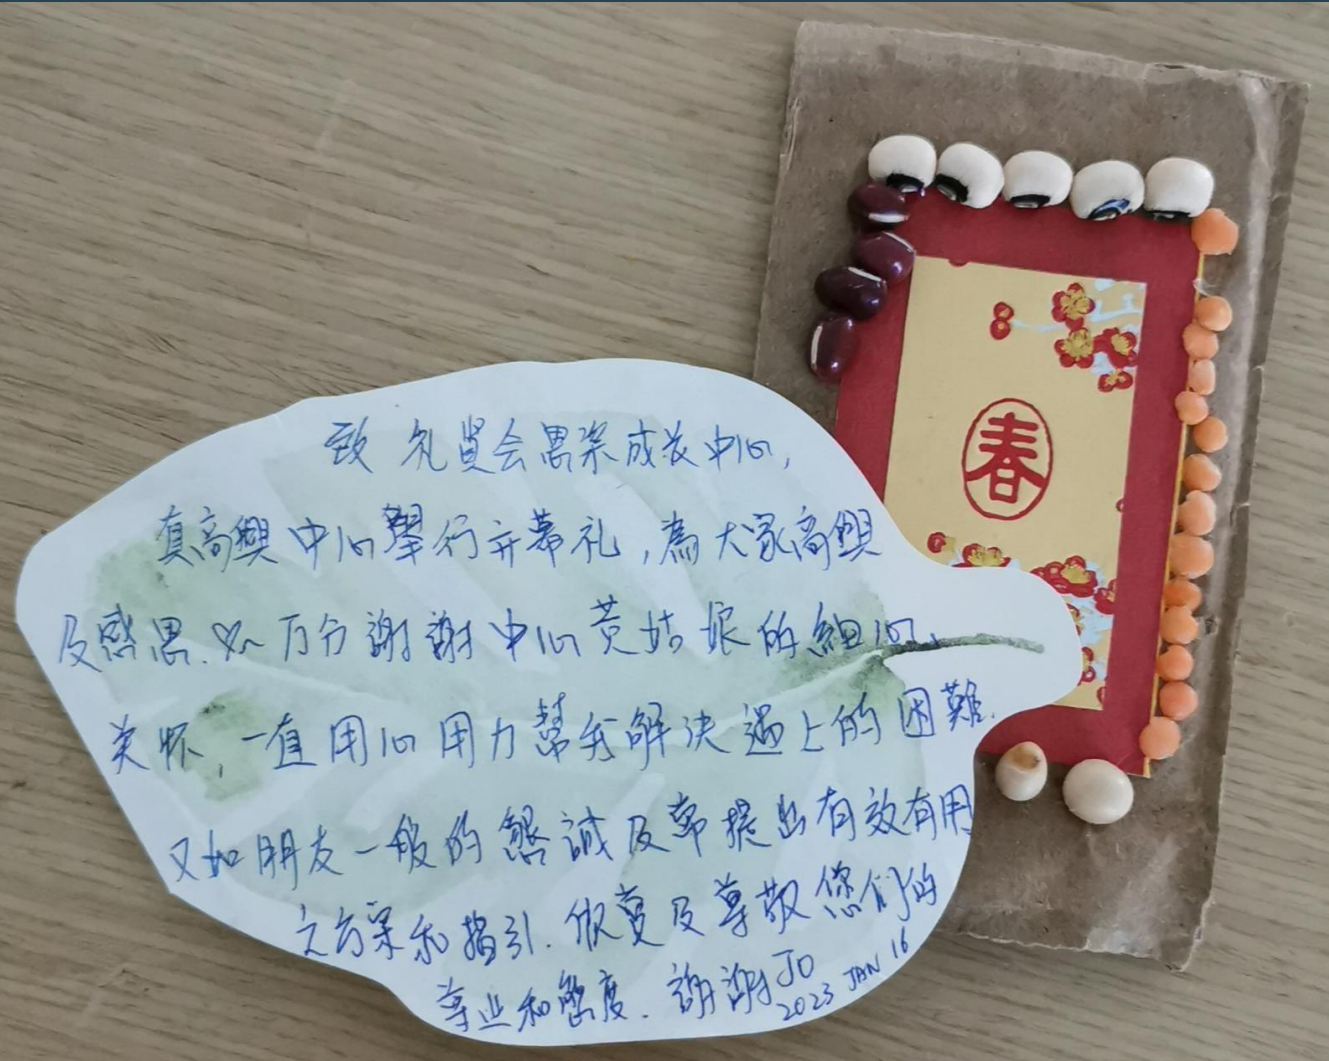 致 礼賢会恩深成长中心,
真高興中心舉行开幕礼,為大家高興
及感恩.如万分謝謝中心黄姑娘的細心、
关怀,一直用心用力幫我解決遇上的困難.
又如朋友一般的懇誠及常提出有效有用
之方案和指引.欣賞及尊敬您们的
專业和態度.謝謝JO
2023 JAN 16
春